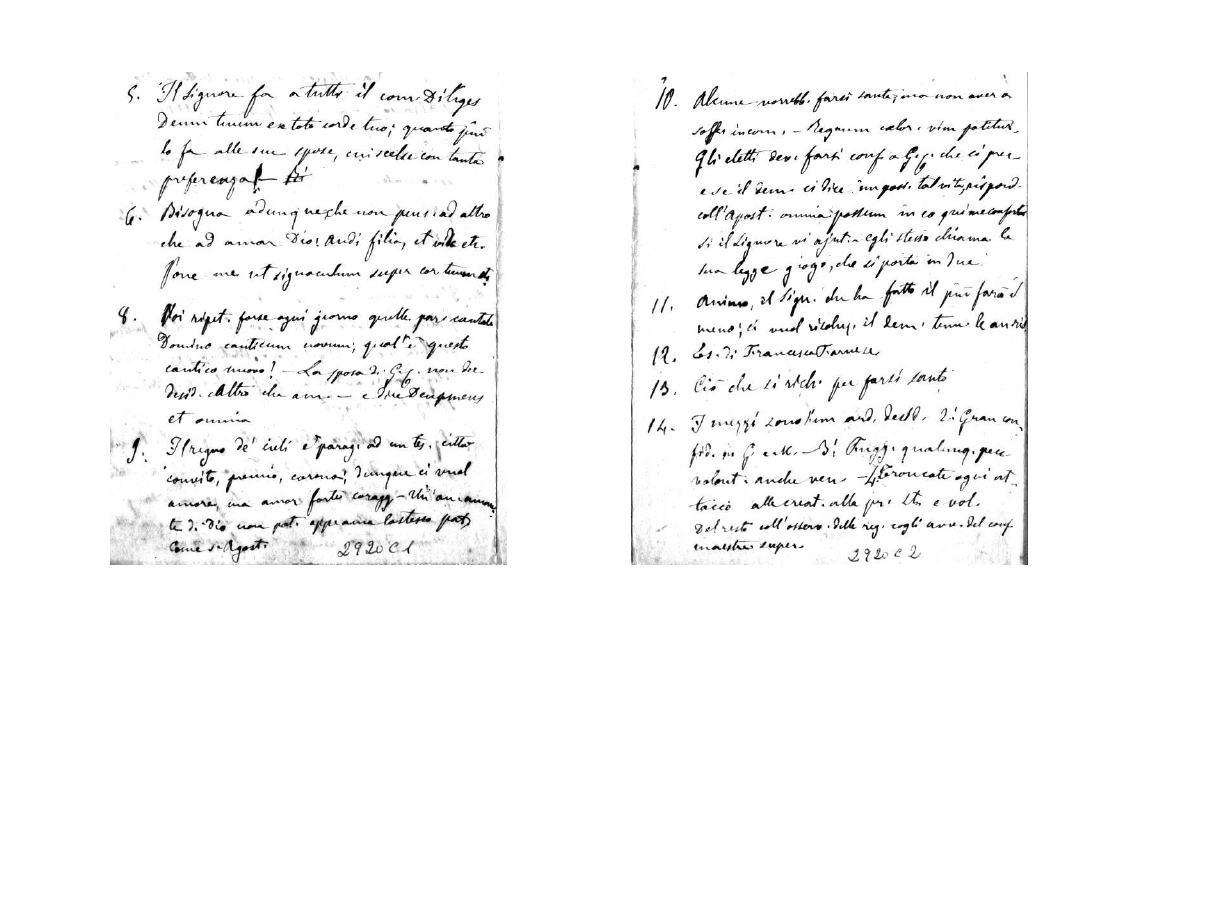 5. Il Signore fa a tutti il com. Diliges
Deum tuum ex toto corde tuo; quanto più
lo fa alle sue spose, cui scelse con tanta
preferenza! —
6. Bisogna adunque che non pensi ad altro
che ad amar Dio! Audi filia, et vide etc.
Pone me ut signaculum super cor tuum
8. Voi ripet. forse ogni giorno quelle par. cantate
Domino canticum novum; qual'è questo
cantico nuovo! — La sposa di G. C. non de
desid. altro che am. — e dire Deus meus
et omnia
9. Il regno de' cieli è parag. ad un tes. città
convito, premio, corona; dunque ci vuol
amore, ma amor forte coragg — Un'an. aman
te di Dio non pat.
come S. Agost.
2920 C 1
10. Alcune vorrebb. farsi sante, ma non aver a
soffr incom. — Regnum cœlor. vim patitur.
Gli eletti dev. farsi conf. a G. C. che ci prec
e se il dem. ci dice imposs. tal vita, rispond.
coll'Apost. omnia possum in eo qui me confortat
si il Signore vi ajut. egli stesso chiama la
sua legge giogo, che si porta in due.
11. Animo, il Sign. che ha fatto il più farà il
meno; ci vuol risoluz. il dem. teme le
12. Es. di Francesca Farnese
13. Ciò che si rich. per farsi santo
14. I mezzi sono l'un ard. desid. 2. Gran con
fid. in G. e M. — 3. Fugg. qualunq. pecc
volont. anche ven. — 4. Troncate ogni at
tacco alle creat. alla pr. st. e vol.
Del resto coll'osserv. delle reg. cogli avv. del conf
maestre super.
2920 C 2